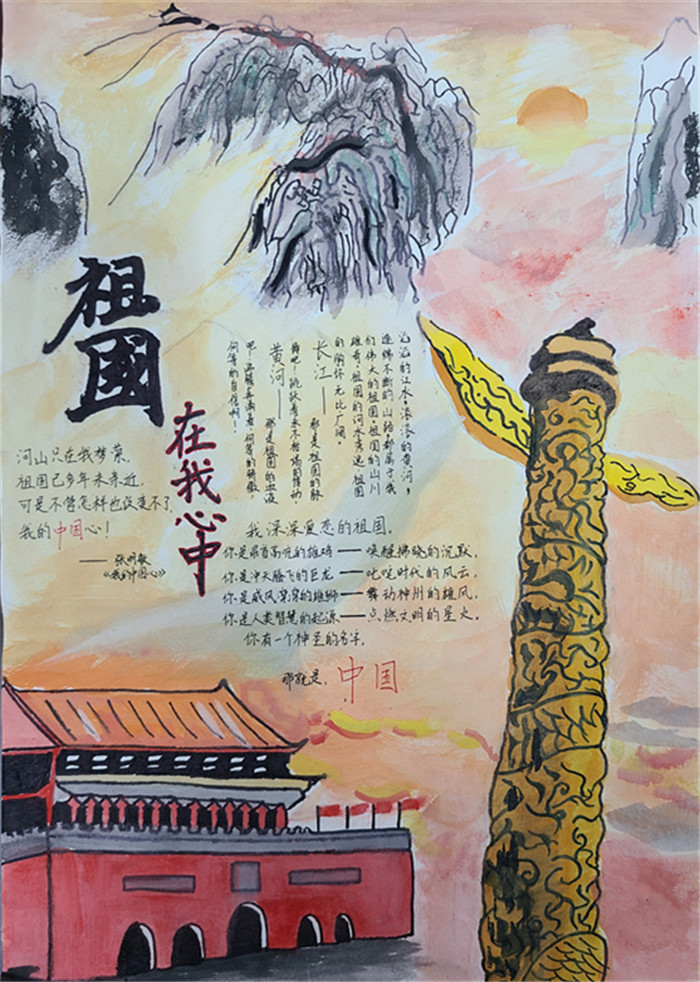 祖國
在我心中
滔滔的江水,滚滚的黄河,
连绵不断的山路都属于我
们伟大的祖国。祖国的山川
雄奇,祖国的河水秀逸,祖国
的胸怀无比广阔。
长江——那是祖国的脉
搏吧!跳跃着永不停的律动,
黄河——那是祖国的血液
吧!着何等的骄傲
何等的自信啊!
河山只在我梦萦,
祖国已多年未亲近,
可是不管怎样也改变不了,
我的中国心!
——张明敏
《我的中国心》
我深深爱恋的祖国。
你是昂首高亢的雄鸡——唤醒拂晓的沉默,
你是冲天腾飞的巨龙——叱咤时代的风云,
你是威风凛凛的雄狮——舞动神州的雄风,
你是人类智慧的起源——点燃文明的星火。
你有一个神圣的名字,
那就是,中国